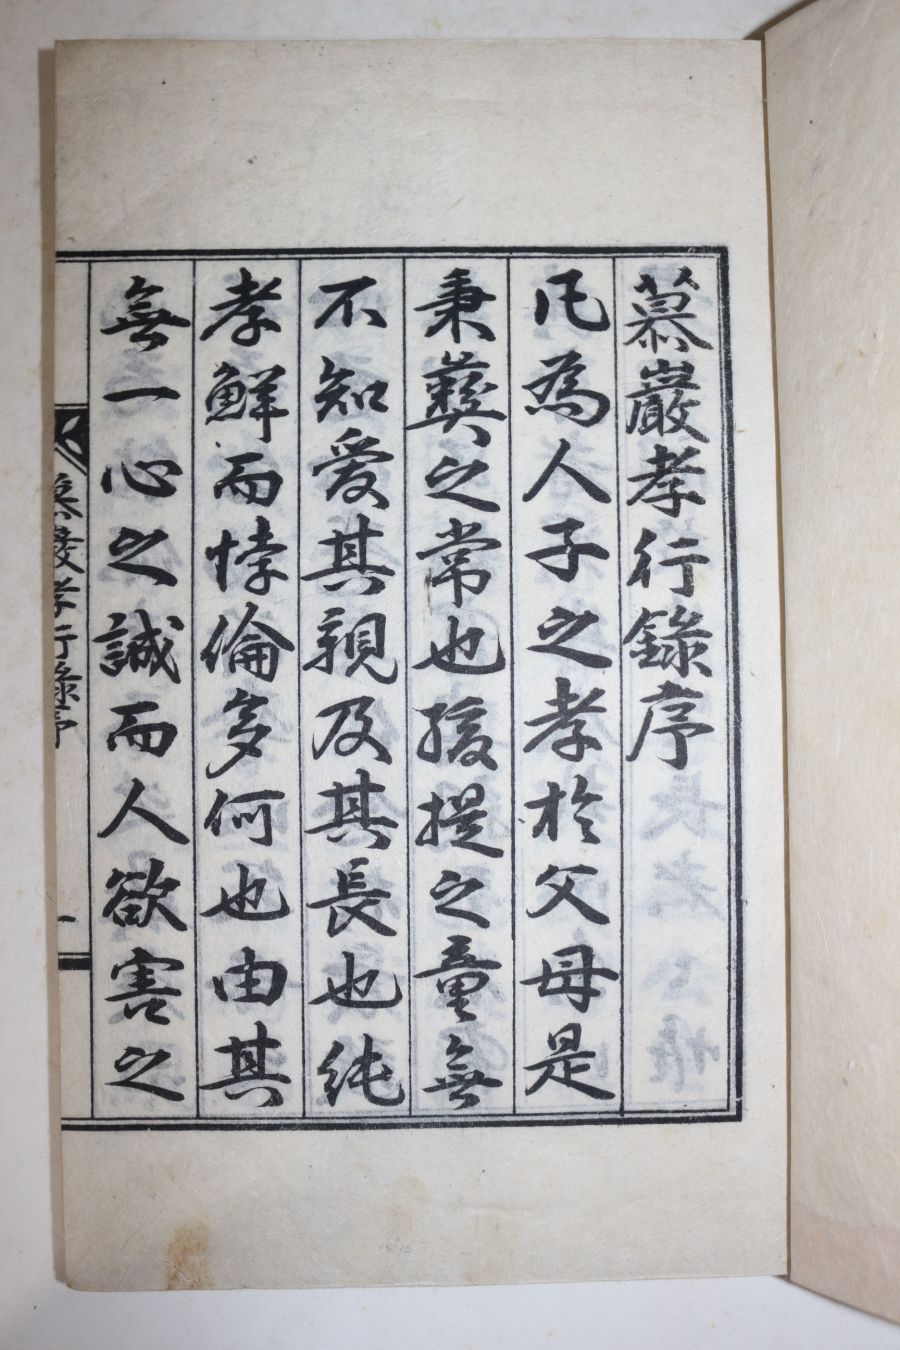 慕巖孝行錄序
凡為人子之孝於父母是
秉彛之常也孩提之童無
不知爱其親及其長也純
孝鮮而悖倫多何也由其
無一心之誠而人欲害之
慕巖孝行錄序
一